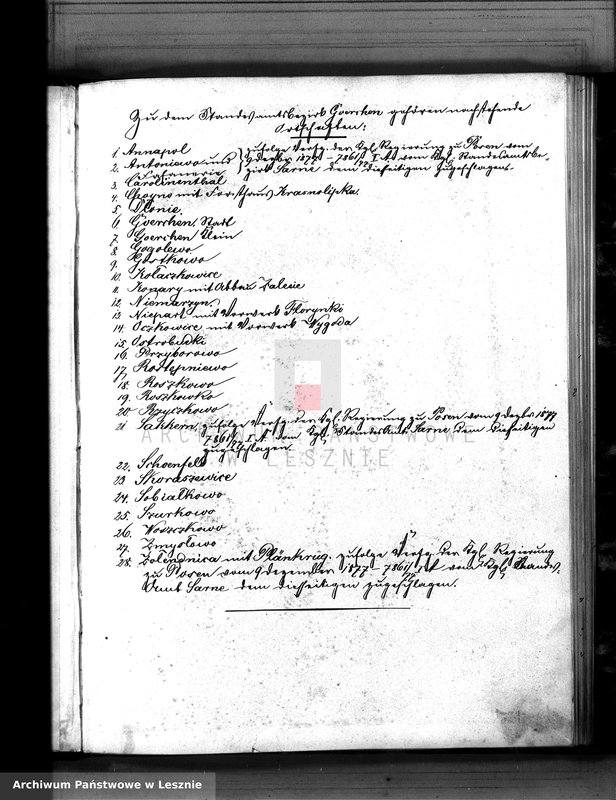 Zu dem Standesamtsbezirk Goerchen gehören nachstehende
Ortschaften:
1. Annapol
2. Antoniewo und
zufolge Verfg. der Kgl. Regierung zu Posen vom
9 Dezember 1877 - 7861/77 I A. vom Kgl. Standesamtsbe-
zirk Sarne dem diesseitigen zugeschlagen.
3. Carolinenthal
4. Chojno mit Forsthaus Krasnolipka
5. Dłonie
6. Goerchen, Stadt
7. Goerchen Klein
8. Gogolewo
9. Gostkowo
10. Kołaczkowice
11. Konary mit Abbau Zalesie
12. Niemarzyn
13. Niepart mit Vorwerk Florynki
14. Oczkowice mit Vorwerk Wygoda
15. Ostrobudki
16. Przyborowo
17. Rostępniewo
18. Roszkowo
19. Roszkowko
20. Rzyczkowo
21. Sakkern, zufolge Verfg. der Kgl. Regierung zu Posen vom 9 Dezbr 1877
7861/77 I A. vom Kgl. Standes Amt Sarne dem diesseitigen
zugeschlagen.
22. Schoenfeld
23. Skoraszewice
24. Sobiałkowo
25. Szurkowo
26. Woszczkowo
27. Zmysłowo
28. Zolendnica mit Plänkrug, zufolge Verfg. der Kgl. Regierung
zu Posen vom 9 Dezember 1877 - 7861/77 I A vom Kgl. Standes.
Amt Sarne dem diesseitigen zugeschlagen.
ARCHIWUM PAŃSTWOWE
W LESZNIE
Archiwum Państwowe w Lesznie